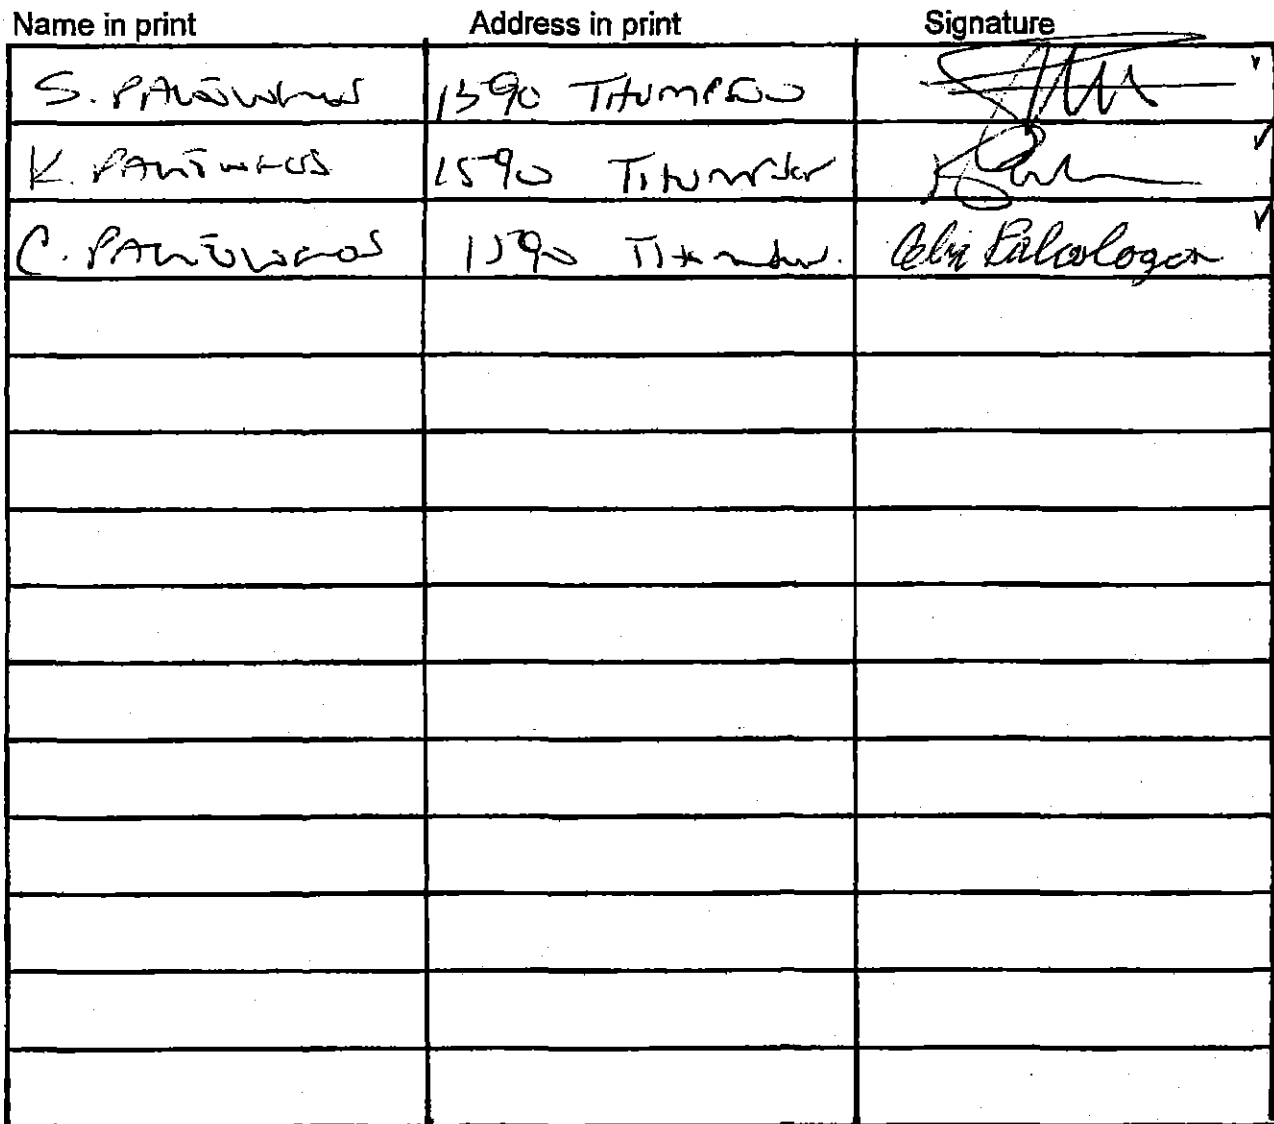 Name in print Address in print Signature
S. PALEOLOGOS 1590 THOMPSON
K. PALEOLOGOS 1590 THOMPSON
C. PALEOLOGOS 1590 THOMPSON. Paleologos